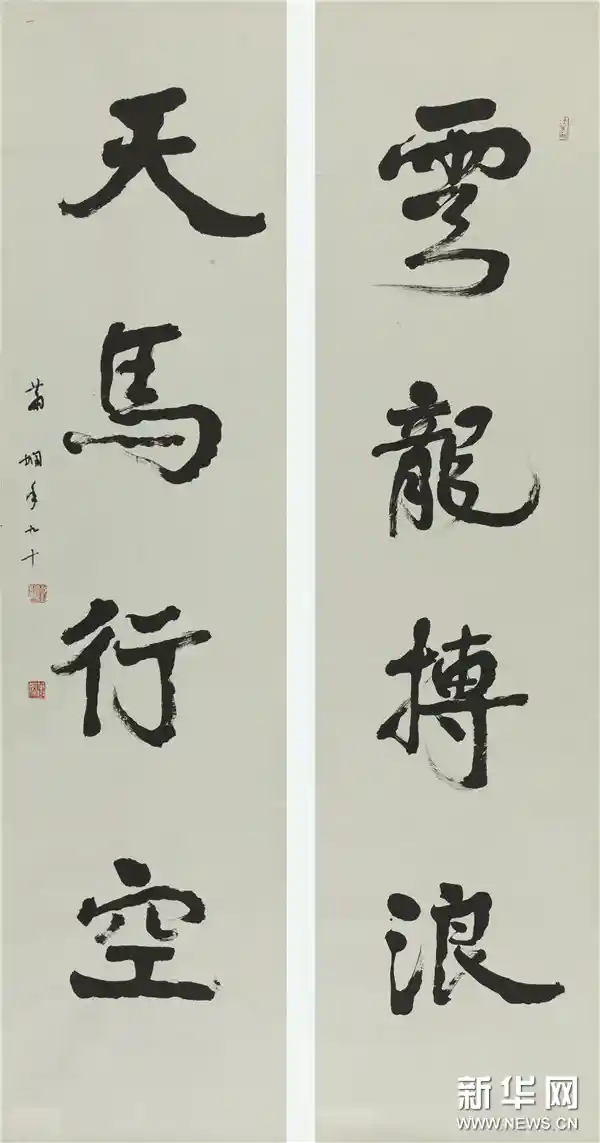 雲龍搏浪
天馬行空
蕭嫻年九十
新华网
WWW.NEWS.CN